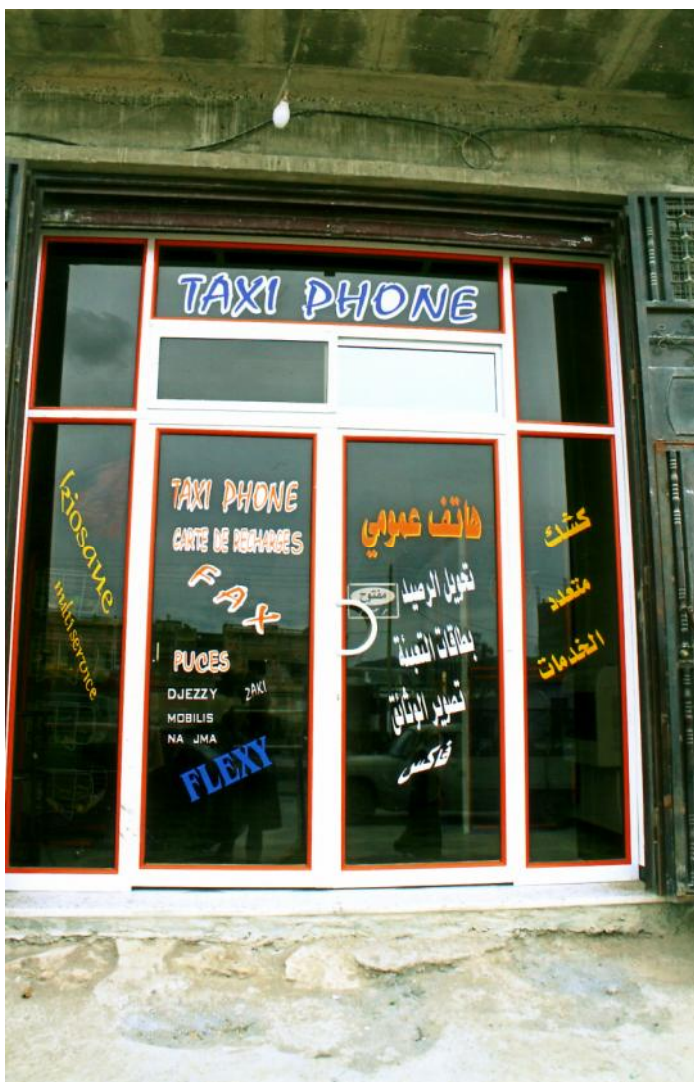 TAXI PHONE
kiosque
multi service
TAXI PHONE
CARTE DE RECHARGES
FAX
PUCES
DJEZZY
ZAKI
MOBILIS
NA JMA
FLEXY
هاتف عمومي
تحويل الرصيد
مفتوح
بطاقات التعبئة
تصوير الوثائق
فاكس
كشك
متعدد
الخدمات